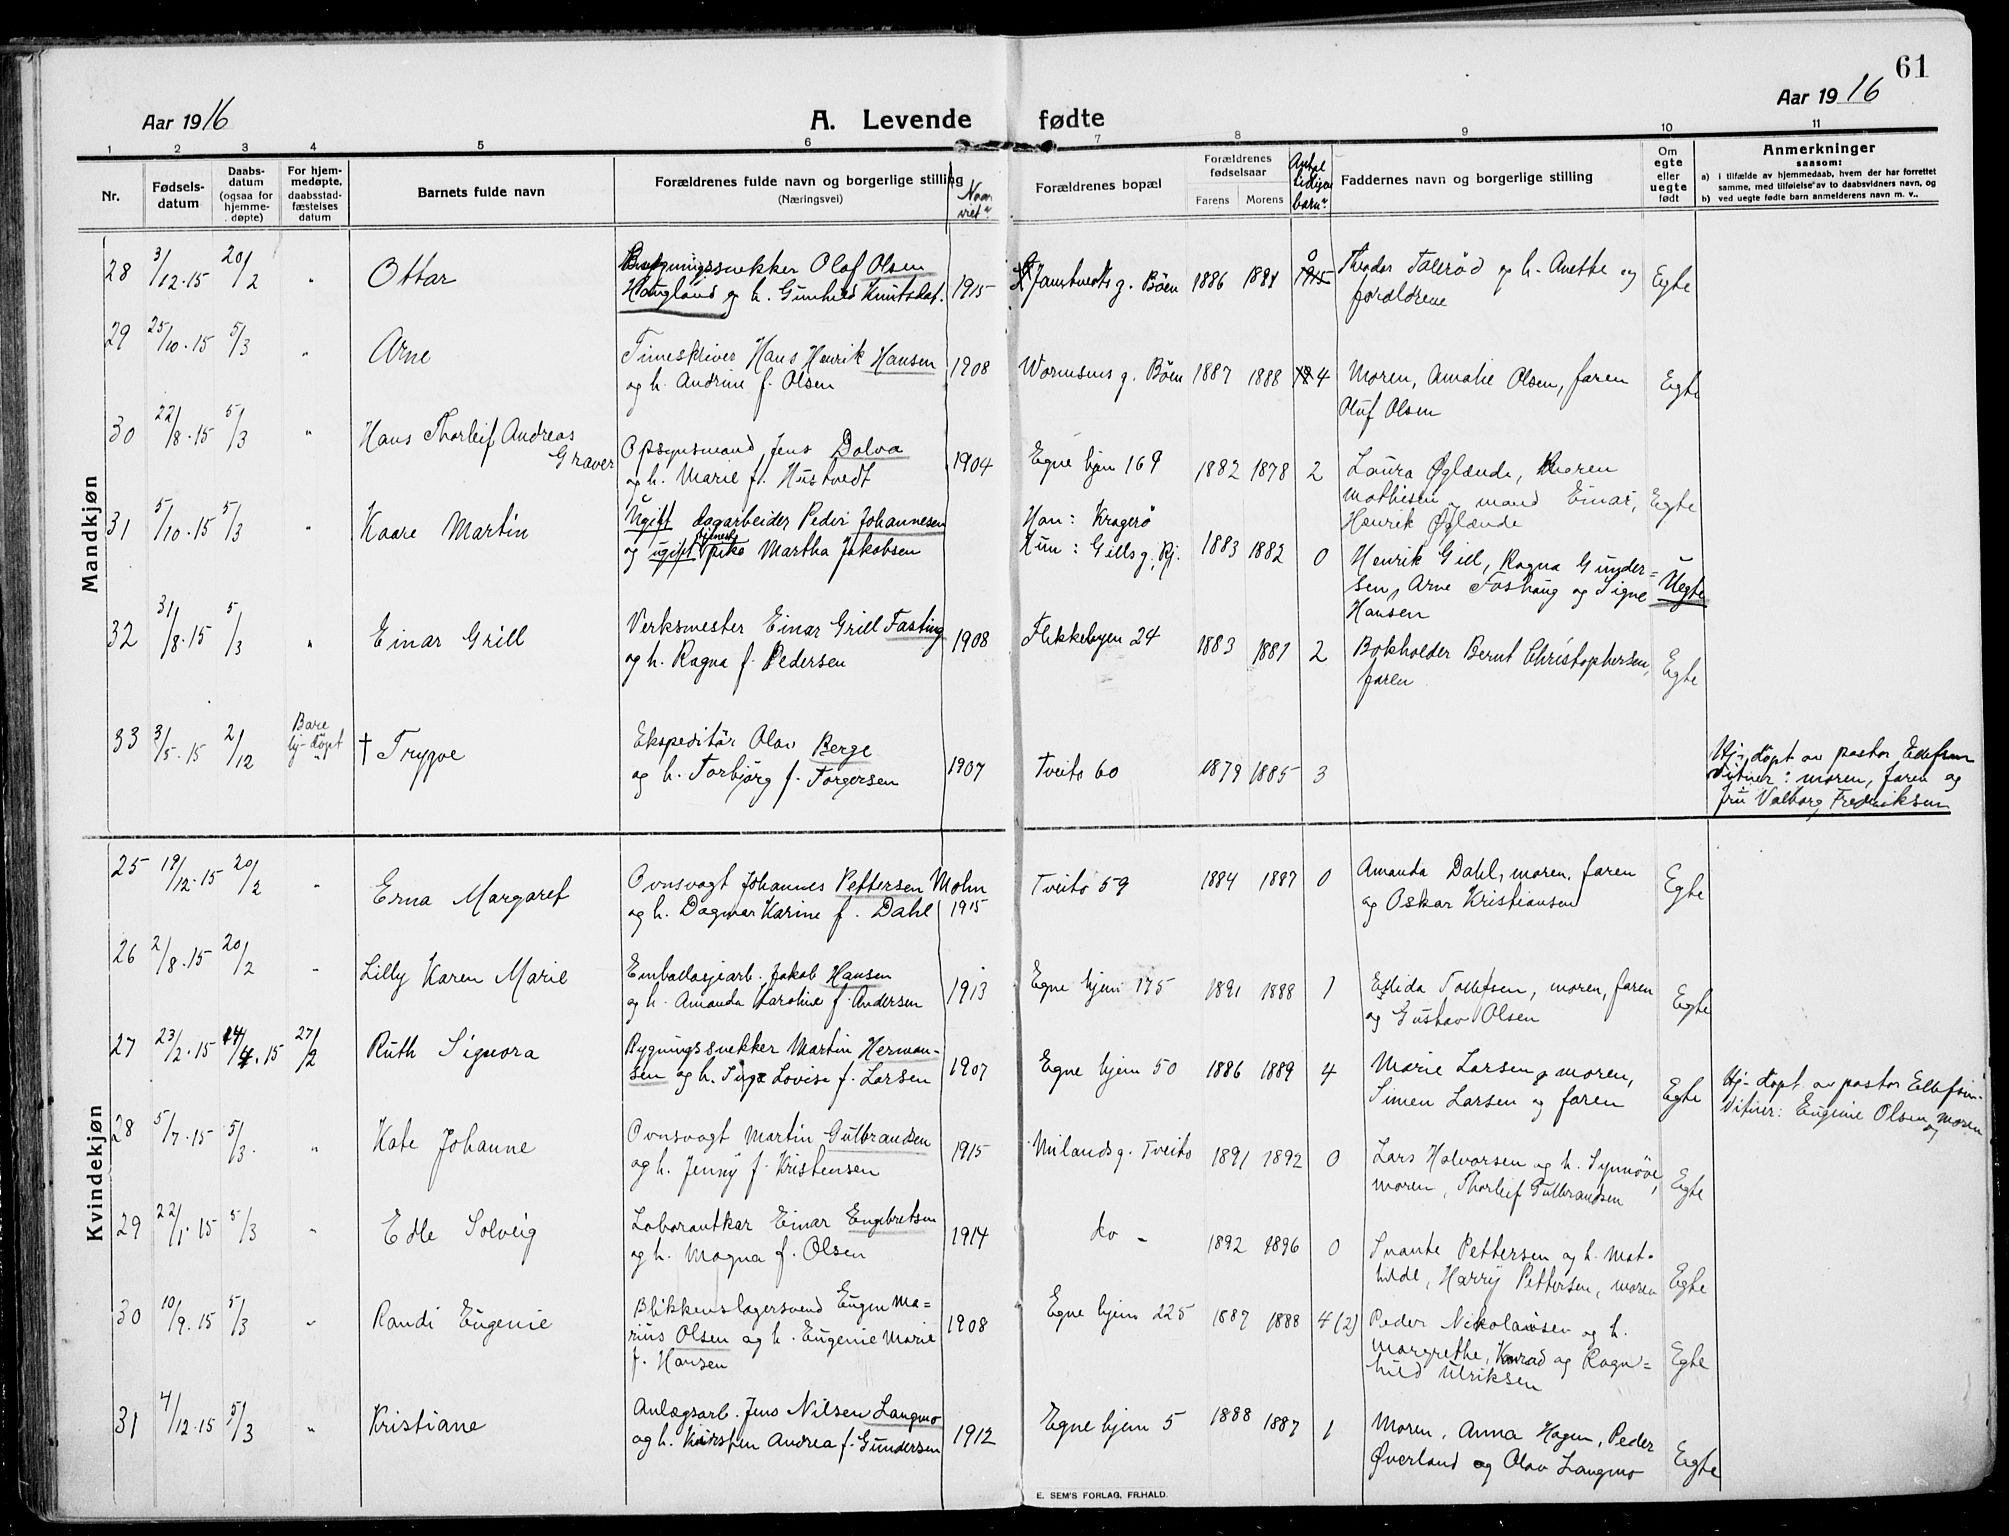 61
Aar 1916
A. Levende fødte
Aar 1916
1 2 3 4 5 6 7 8 9 10 11
Nr.
Fødselsdatum
Daabsdatum (ogsaa for hjemmedøpte)
For hjemmedøpte, daabsstadfæstelses datum
Barnets fulde navn
Forældrenes fulde navn og borgerlige stilling (Næringsvei)
Forældrenes bopæl
Forældrenes fødselsaar
Farens Morens
Faddernes navn og borgerlige stilling
Om egte eller uegte født
Anmerkninger
saasom:
a) i tilfælde av hjemmedaab, hvem der har forrettet samme, med tilføielse av to daabsvidners navn, og
b) ved uegte fødte barn anmelderens navn m. v..
Mandkjøn
28 3/12.15 20/2 " Ottar
Bygningssnekker Olaf Olsen
Haugland og h. Gunhild Knutsdat. 1915
Jamtvedts g. Bøen 1886 1881 0
Theodor Tallerød og h. Anette og
forældrene
Egte
29 25/10.15 5/3 " Arne
Timeskriver Hans Henrik Hansen
og h. Andrine f. Olsen 1908
Wormsens g. Bøen 1887 1888 4
Moren, Amalie Olsen, faren
Oluf Olsen
Egte
30 22/8.15 5/3 " Hans Thorleif Andreas
Graver
Opsynsmand Jens Dolva
og h. Marie f. Hustvedt 1904
Egne hjem 169 1882 1878 2
Laura Øglænde, moren
Mathisen, mand Einar,
Henrik Øglænde
Egte
31 5/10.15 5/3 " Kaare Martin
Ugift dagarbeider Peder Johannesen
og ugift tjeneste pike Martha Jakobsen
Han: Kragerø
Hun: Gills g. Rj. 1883 1882 0
Henrik Gill, Ragna Gundersen,
Arne Foshaug og Signe
Hansen
Uegte
32 31/8.15 5/3 " Einar Grill
Verksmester Einar Grill Fasting
og h. Ragna f. Pedersen 1908
Flekkebyen 24 1883 1881 2
Bokholder Bernt Christophersen,
faren
Egte
33 3/5.15 2/12 Bare hj-døpt † Trygve
Ekspeditør Olav Berge
og h. Torbjørg f. Torgersen 1907
Tveito 60 1879 1885 3
Hj-døpt av pastor Ellefsen
Vitner: moren, faren og
fru Valborg Fredriksen
Kvindekjøn
25 19/12.15 20/2 " Erna Margaret
Ovnsvagt Johannes Pettersen Mohn
og h. Dagmar Karine f. Dahl 1915
Tveito 59 1884 1887 0
Amanda Dahl, moren, faren
og Oskar Kristiansen
Egte
26 2/8.15 20/2 " Lilly Karen Marie
Emballasjearb. Jakob Hansen
og h. Amanda Karoline f. Andersen 1913
Egne hjem 175 1891 1888 1
Tollefsen, moren, faren
og Gustav Olsen
Egte
27 23/2.15 14/4.15 27/2 Ruth Signora
Bygningssnekker Martin Hermansen
og h. Inga Lovise f. Larsen 1907
Egne hjem 50 1886 1889 4
Marie Larsen, moren,
Simen Larsen og faren
Egte
Hj-døpt av pastor Ellefsen.
Vitner: Eugenie Olsen og moren
28 5/7.15 5/3. " Kate Johanne
Ovnsvagt Martin Gulbrandsen
og h. Jenny f. Kristensen 1915
Milands g. Tveito 1891 1892 0
Lars Halvorsen og h. Synnøve,
moren, Thorleif Gulbrandsen
Egte
29 22/1.15 5/3 " Edle Solveig
Laborantkar Einar Engebretsen
og h. Magna f. Olsen 1914
do - 1892 1896 0
Svante Pettersen og h. Mathilde,
Harry Pettersen, moren
Egte
30 10/9.15 5/3 " Randi Eugenie
Blikkenslagersvend Eugen Marius
Olsen og h. Eugenie Marie
f. Hansen 1908
Egne hjem 225 1887 1888 4 (2)
Peder Nikolaisen og h.
Margrethe, Konrad og Ragnhild
Ulriksen
Egte
31 4/12.15 5/3 " Kristiane
Anlægsarb. Jens Nilsen Langmo
og h. Kirsten Andrea f. Gundersen 1912
Egne hjem 5 1888 1887 1
Moren, Anna Hagen, Peder
Øverland og Olav Langmo
Egte
E. SEM'S FORLAG, FR.HALD.